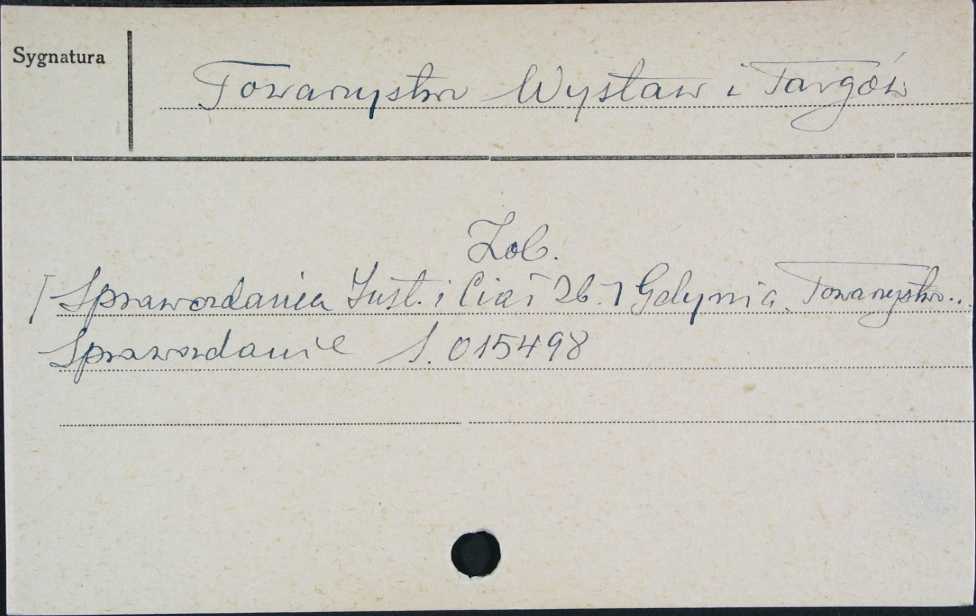 Sygnatura
Towarzystwo Wystaw i Targów
Zob.
[Sprawozdania Inst. i Ciał Zb.] Gdynia. Towarzystwo..
Sprawozdanie S. 015498